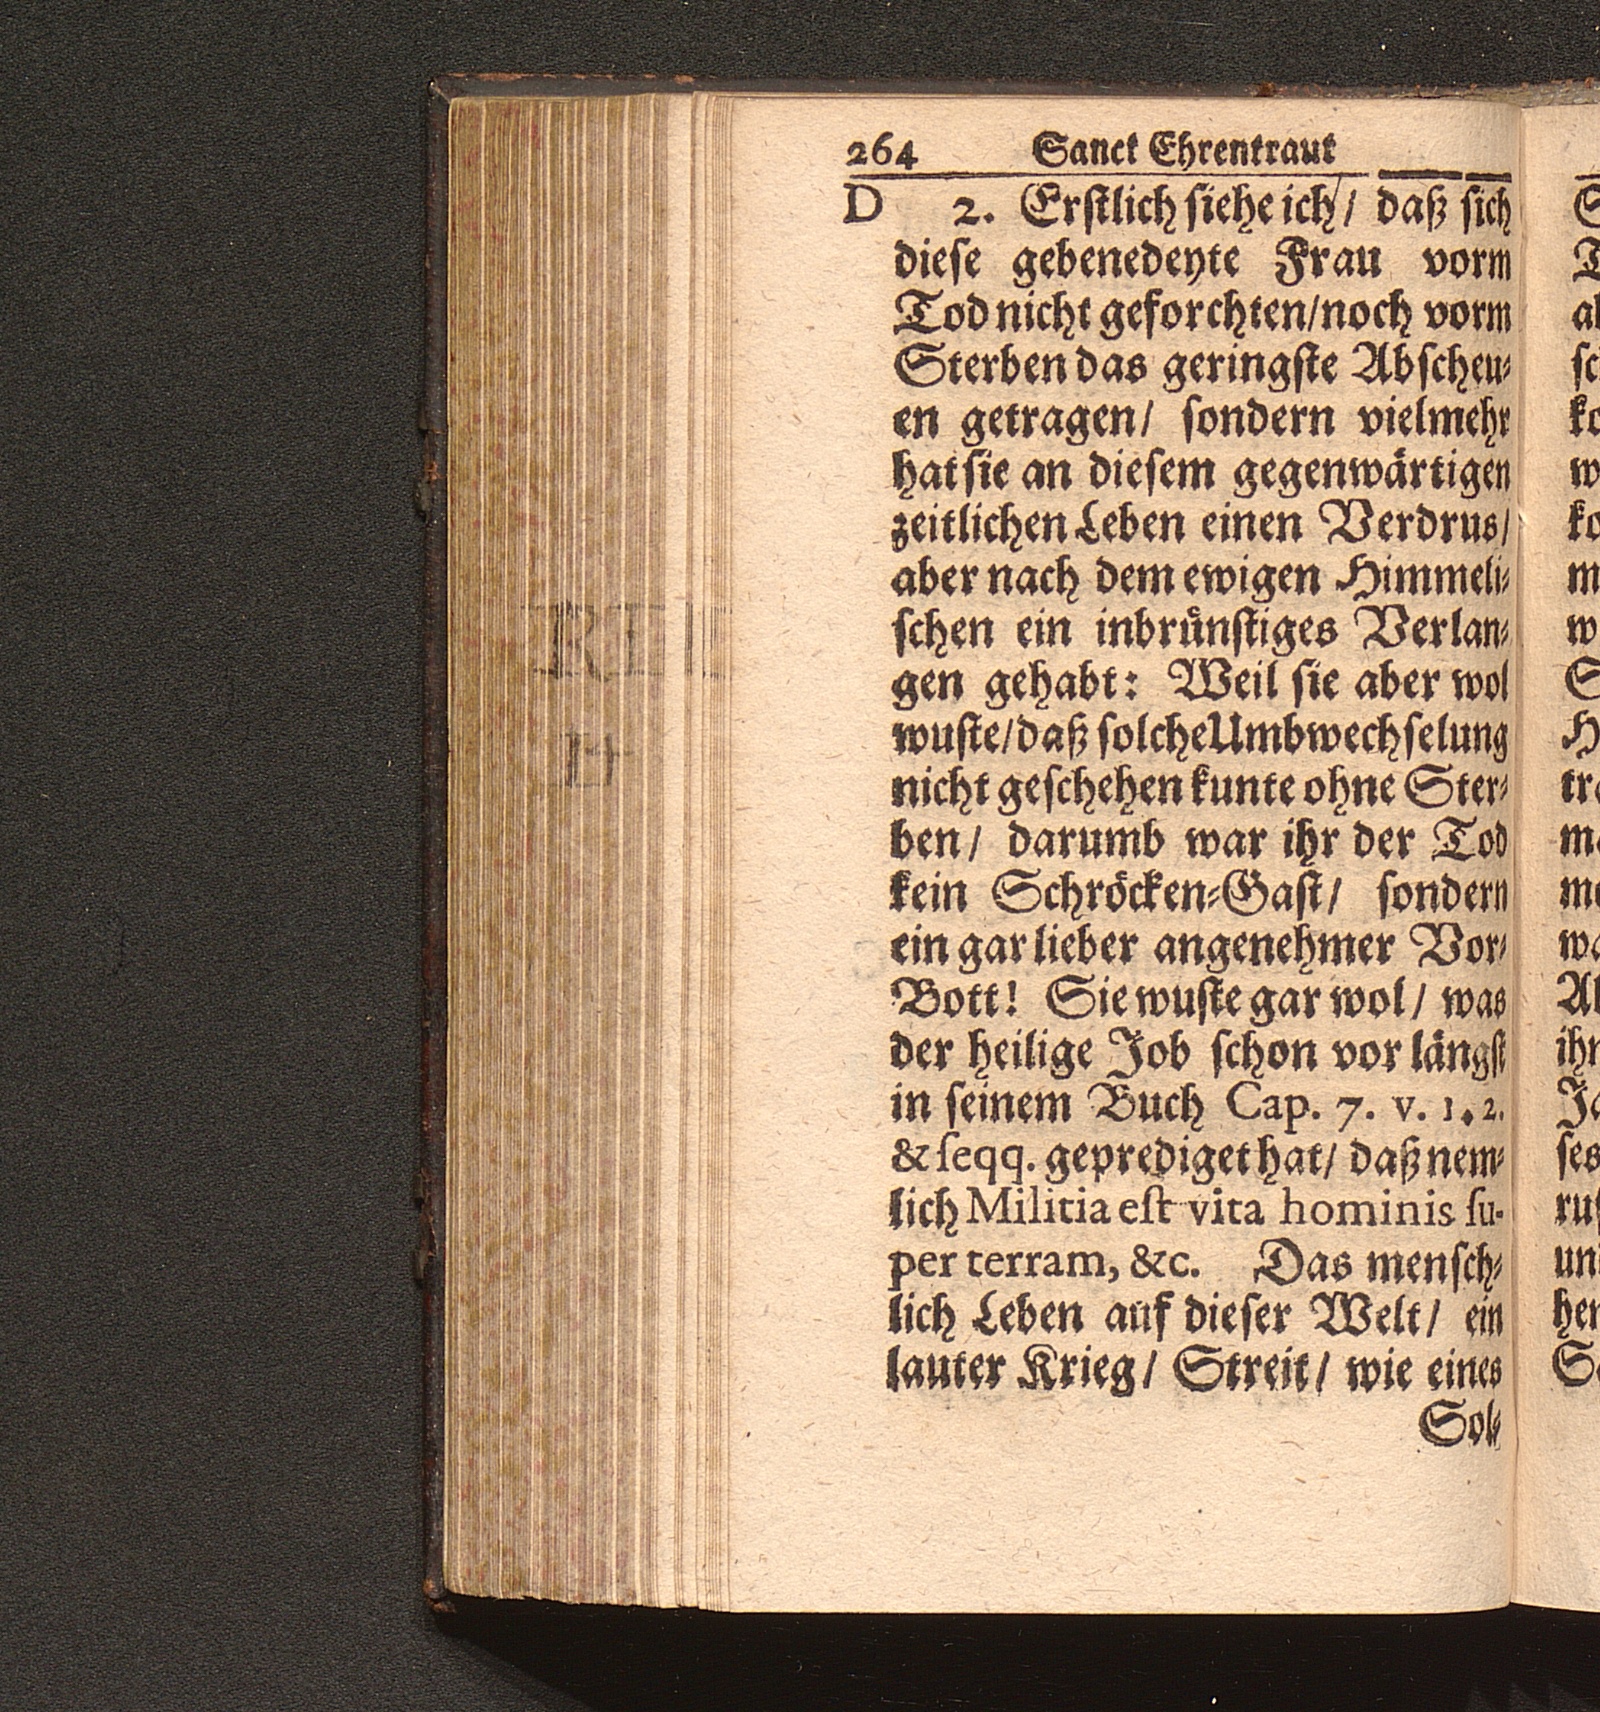 264 Sanct Ehrentraut
D 2. Erſtlich ſiehe ich / daß ſich
dieſe gebenedeyte Frau vorm
Tod nicht geforchten / noch vorm
Sterben das geringſte Abſcheu⸗
en getragen / ſondern vielmehr
hat ſie an dieſem gegenwaͤrtigen
zeitlichen Leben einen Verdrus /
aber nach dem ewigen Himmeli⸗
ſchen ein inbruͤnſtiges Verlan⸗
gen gehabt: Weil ſie aber wol
wuſte / daß ſolche Umbwechſelung
nicht geſchehen kunte ohne Ster⸗
ben / darumb war ihr der Tod
kein Schroͤcken⸗Gaſt / ſondern
ein gar lieber angenehmer Vor⸗
Bott! Sie wuſte gar wol / was
der heilige Job ſchon vor laͤngſt
in ſeinem Buch Cap. 7. v. 1. 2.
& ſeqq. geprediget hat / daß nem⸗
lich Militia eſt vita hominis ſu-
per terram, &c. Das menſch⸗
lich Leben auf dieſer Welt / ein
lauter Krieg / Streit / wie eines
Sol⸗